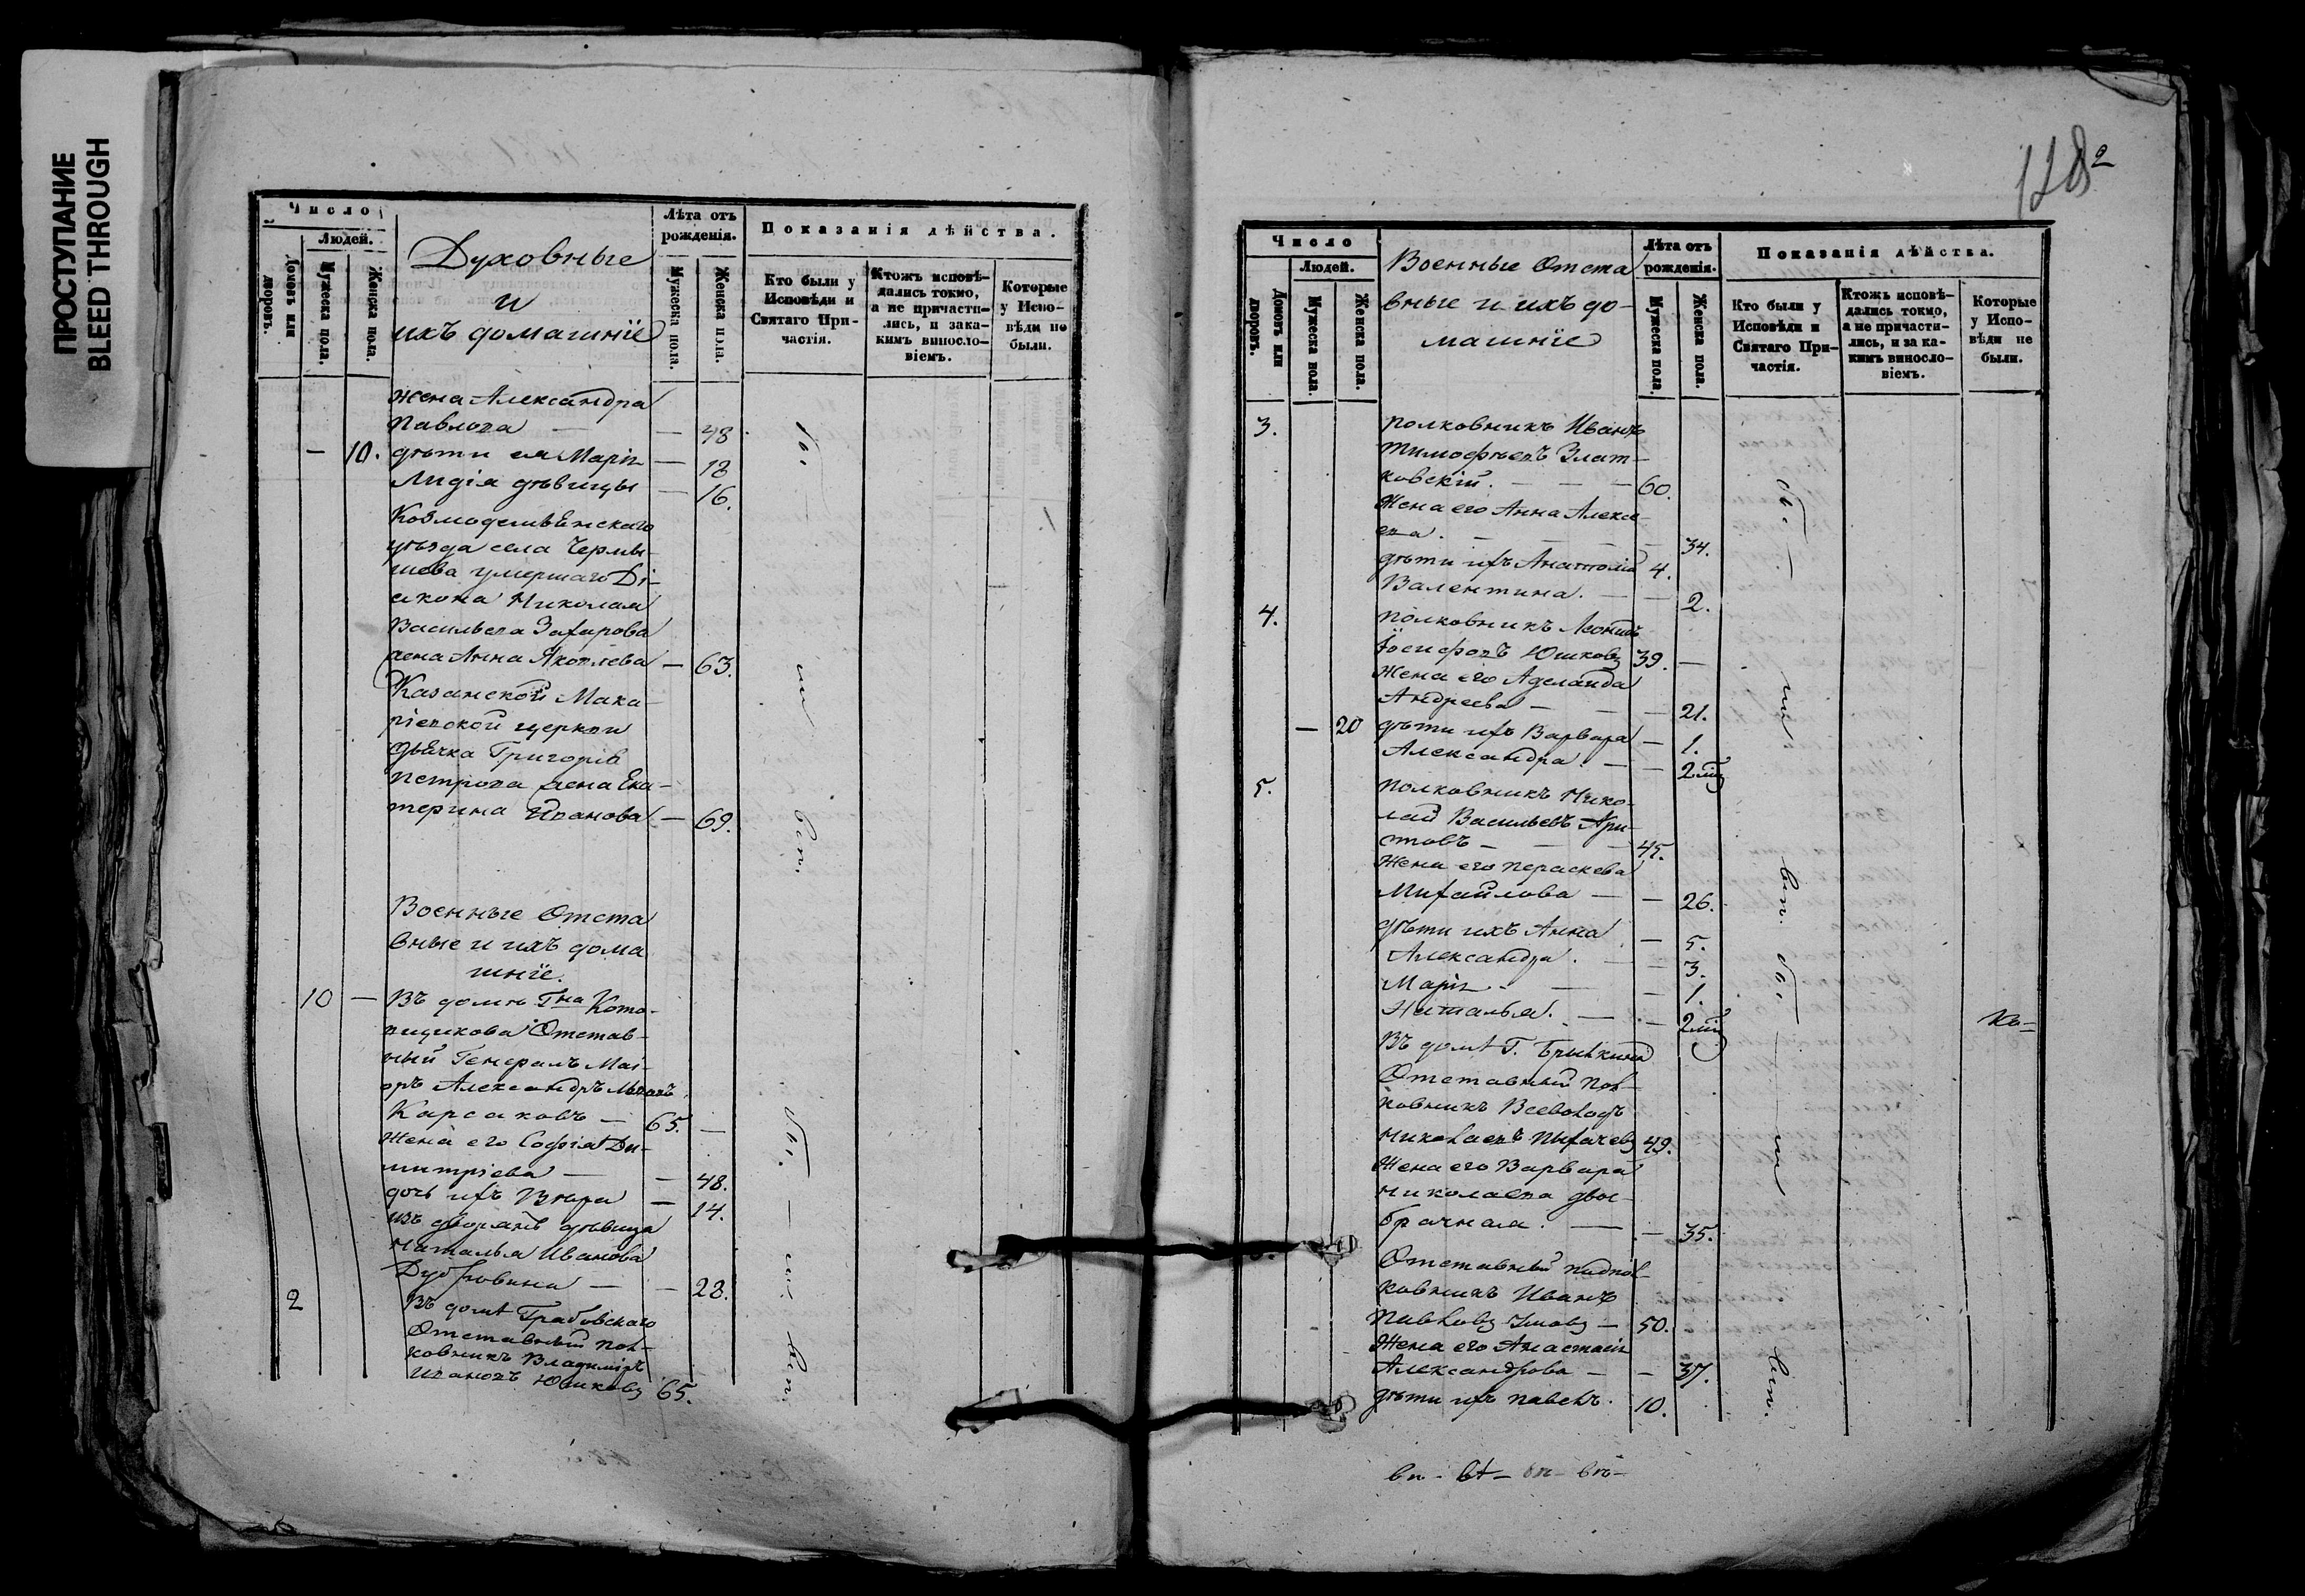 ПРОСТУПАНИЕ
BLEED THROUGH
Число
Людей.
Домовъ или дворовъ.
Мужеска пола.
Женска пола.
Духовные
и
ихъ домашнiе
Лѣта отъ
рожденiя.
Мужеска пола.
Женска пола.
Показанiя дѣйства.
Кто были у
Исповѣди и
Святаго При-
частiя.
Ктожъ исповѣ-
дались токмо,
а не причасти-
лись, и за ка-
кимъ винносло-
вiемъ.
Которые
у Испо-
вѣди не
были.
жена Александра
Павлова — — 48
— 10. дѣти ея Марiя — 18
Лидiя дѣвицы — 16.
Козмодемьянскаго
уѣзда села Чермы-
шева умершаго Дi-
акона Николая
Васильева Захарова
жена Анна Яковлева — 63.
Казанской Мака-
рiевской церкви
дьячка Григорiя
Петрова жена Ека-
терина Иванова — 69.
бы-
ли
вп.
Военные Отста
вные и ихъ дома
шнiе.
10 — Въ домѣ Гна Кото-
вщикова Отстав-
ный Генералъ Маi-
оръ Александръ
Карсаковъ — 65. —
Жена его Софiя Ди-
митрiева — — 48.
дочь ихъ Вѣра — 14.
изъ дворянъ дѣвица
Наталья Иванова
Дубровина — — 28.
2 Въ домѣ Грабовскаго
Отставный пол-
ковникъ Владимiръ
Ивановъ Юшковъ 65.
бы — ли вп.
128
Число
Людей.
Домовъ или дворовъ.
Мужеска пола.
Женска пола.
Военные Отста
вные и ихъ до-
машнiе
Лѣта отъ
рожденiя.
Мужеска пола
Женска пола.
Показанiя дѣйства.
Кто были у
Исповѣди и
Святаго При-
частiя.
Ктожъ исповѣ-
дались токмо,
а не причасти-
лись, и за ка-
кимъ винносло-
вiемъ.
Которые
у Испо-
вѣди не
были.
3. Полковникъ Иванъ
Тимофѣевъ Злат-
ковскiй. — — — 60.
Жена его Анна Алексѣ-
ева. — — — 34.
дѣти ихъ Анатолiй 4.
Валентина. — — 2.
4. Полковникъ Леонидъ
Iосифовъ Юшковъ 39. —
Жена его Аделаида
Андреева — — — 21.
— 20 дѣти ихъ Варвара — 1.
Александра. — — 2 мѣ
5. Полковникъ Нико-
лай Васильевъ Ари-
стовъ — — — 45.
Жена его Пераскева
Михайлова — — 26.
дѣти ихъ Анна — 5.
Александра. — — 3.
Марiя. — — 1.
Наталья. — — 2 мѣ
Въ домѣ Г.
Отставный пол-
ковникъ Всеволодъ
Николаевъ Пыхачевъ 49.
Жена его Варвара
Николаева двое-
брачная. — — 35.
Отставный подпол-
ковникъ Иванъ
Павловъ — 50.
Жена его Анастасiя
Александрова — — 37.
дѣти ихъ Павелъ. 10.
бы —
ли
вп.
бы — ли
вп.
вп - вѣ - вп - въ -